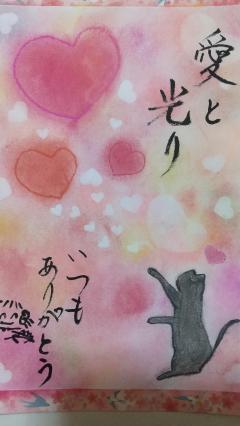 愛と
光り
いつも
ありがとう